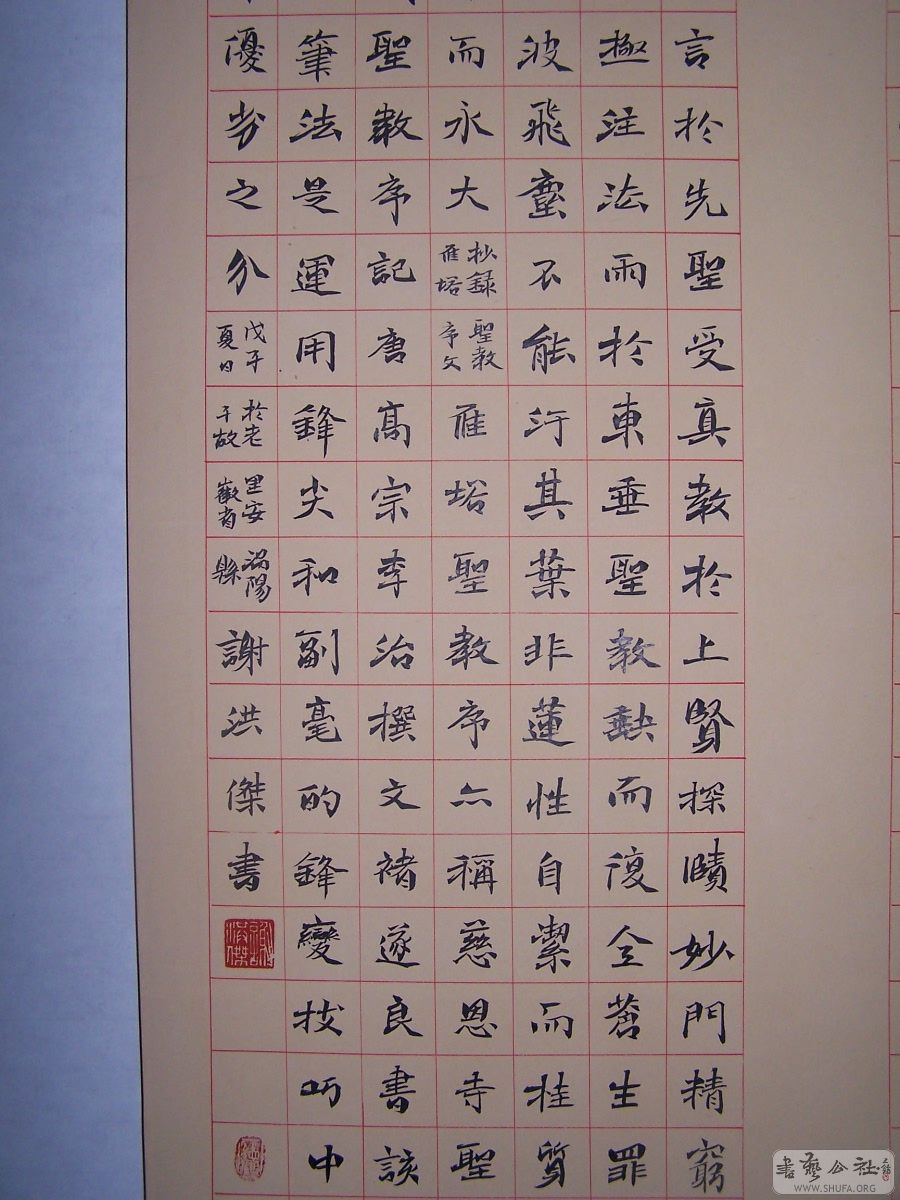 言於先聖受真教於上賢探賾妙門精窮
極注法雨於東垂聖教缺而復全蒼生罪
波飛塵不能汙其葉非蓮性自潔而桂質
而永大抄錄雁塔聖教序文雁塔聖教序亦稱慈恩寺聖
聖教序記唐高宗李治撰文褚遂良書該
筆法是運用鋒尖和副毫的鋒變技巧中
優劣之分戊子夏日於老子故里安徽省渦陽縣謝洪傑書
書藝公社
WWW.SHUFA.ORG